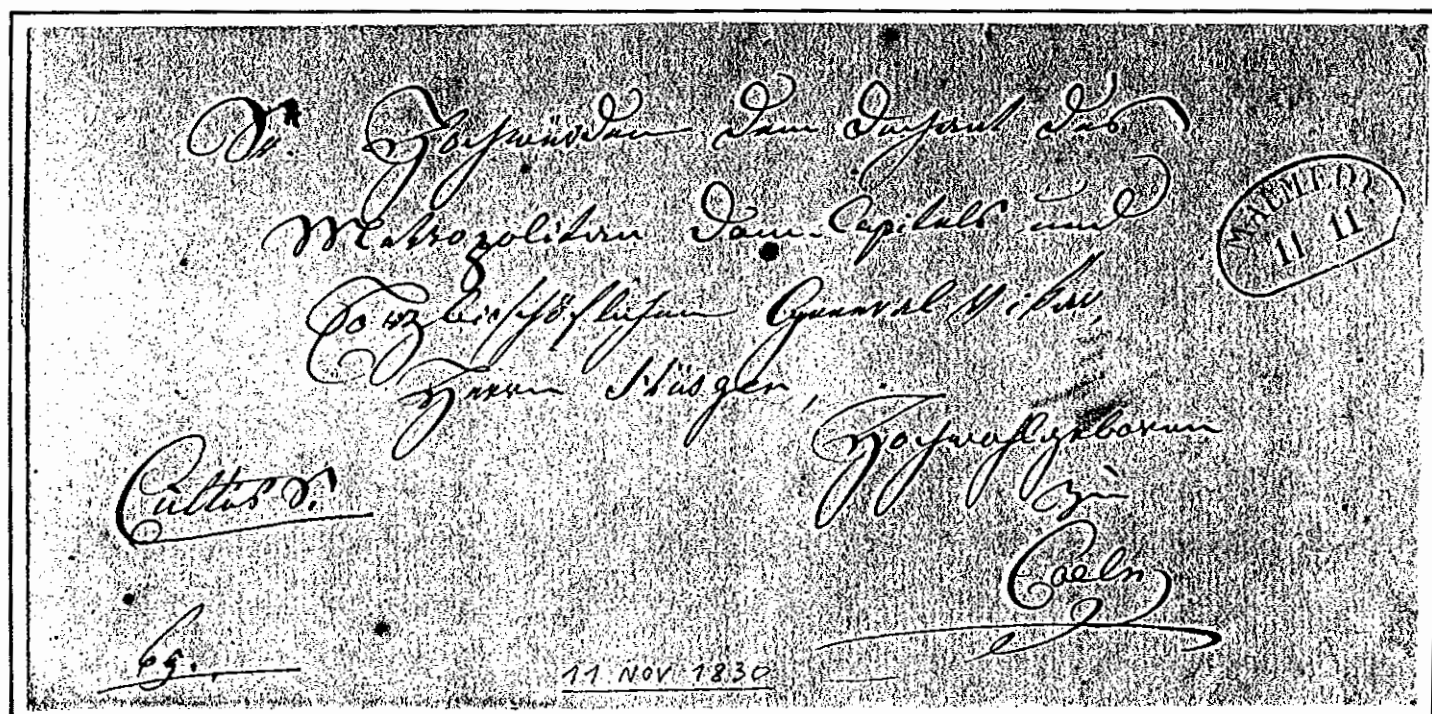 Sr. Hochwürden dem Dechant des
Metropolitan Dom-Capitels und
Erzbischöflichen General Vikar,
Herrn Hüsgen,
Hochwohlgeboren
zu
Coeln
MALMEDY
11 11
Cultus S.
11 NOV 1830